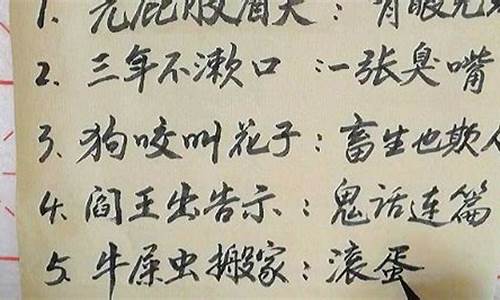 1. 光屁股眉夫：有眼无
2. 三年不漱口：一张臭嘴
3. 狗咬叫花子：畜生也欺人
4. 阎王出告示：鬼话连篇
5. 牛屎虫搬家：滚蛋